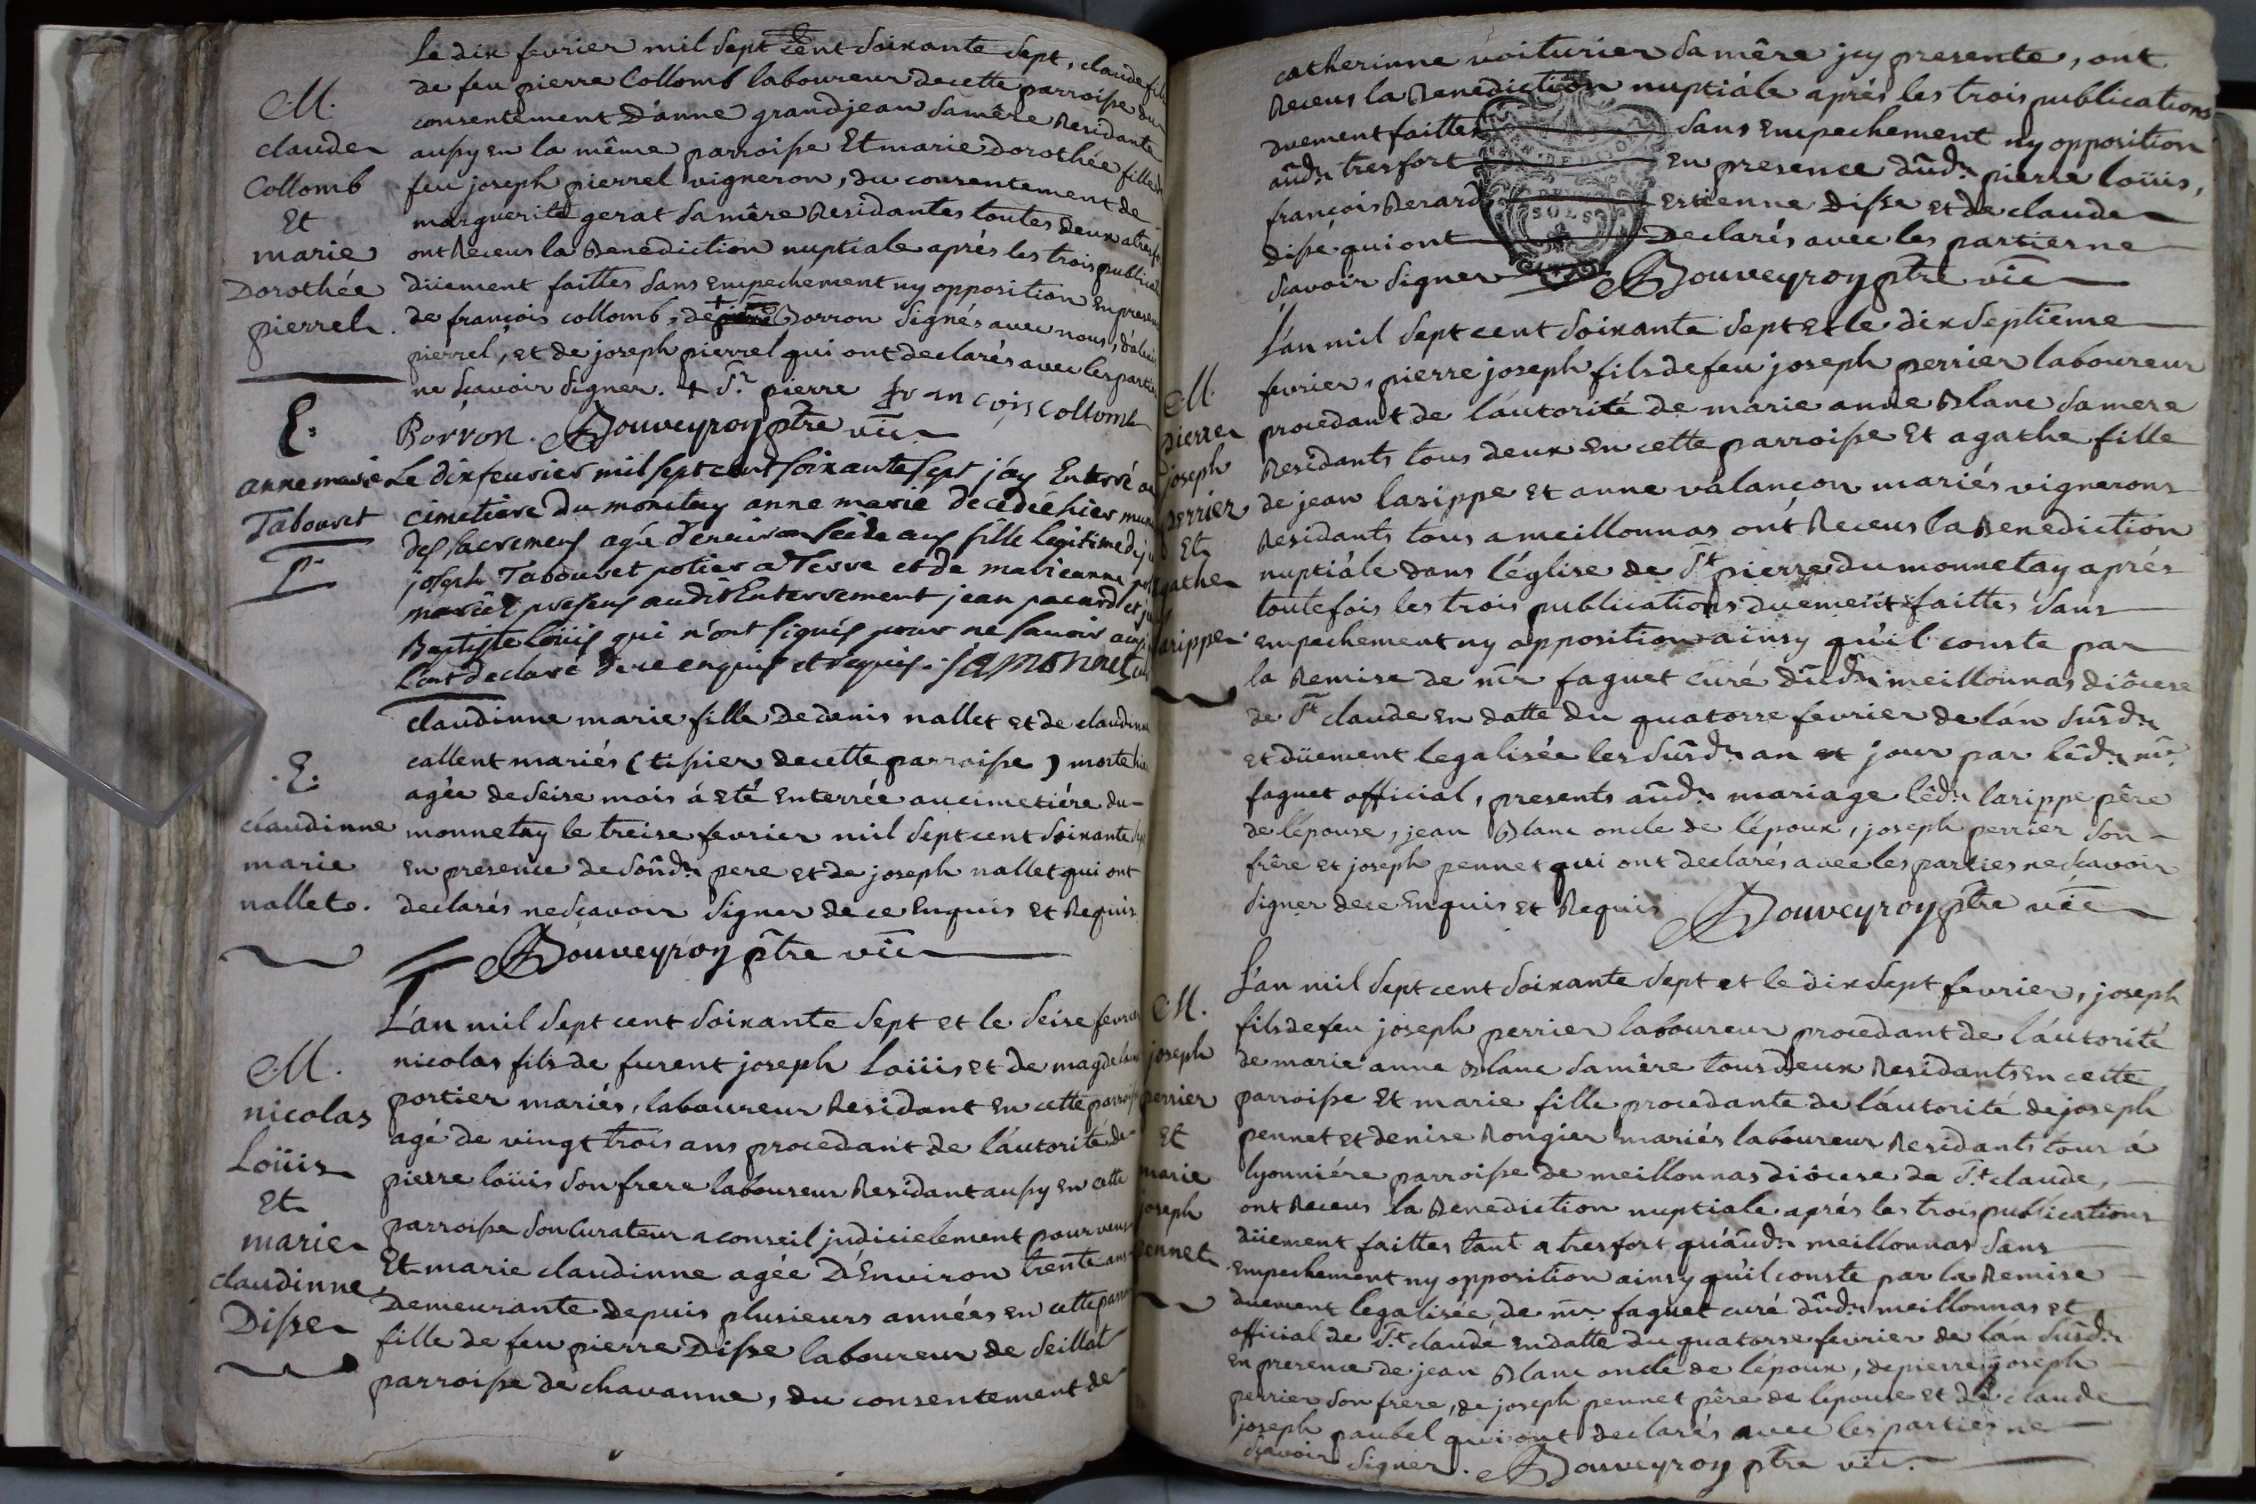 M.
claude
Collomb
Et
marie
Dorothée
pierrel.
Le dix fevrier mil sept cent soixante sept, claude fils
de feu pierre Collomb laboureur decette parroisse du
consentement D'anne grandjean samêre Residante
aussy en la même parroisse Et marie Dorothée fille de
feu joseph pierrel vigneron, du consentement de
marguerite gerat samêre Residantes toutes deux atresfort
ont Receus la Benediction nuptiale aprés les trois publica
düement faittes sans Empechement ny opposition En presen
de françois collomb, de Borron signés avec nous,
pierrel, et de joseph pierrel qui ont declarés avec les partie
ne scavoir signer. + Sr. pierre françois collomb
Borron. Bouveyroy ptre vic
E.
anne marie
Tabouret
P
Le dix feuvrier mil sept cent soixante sept j'ay Enterré au
cimetiére du monetay anne marie decedée hier munie
des sacremens agé d'environ seize ans fille legitime de
joseph Tabouret potier a Terre et de marieanne
mariés presens audit Enterrement jean pacard et
Baptiste loüis qui n'ont signés pour ne savoir ainsi
l'ont declaré de ce enquis et requis. Jamonnet
.E.
claudinne
marie
nallet.
claudinne marie fille de denis nallet et de claudinne
callent mariés (tissier decette parroisse) morte hier
agée de seise mois á eté enterrée au cimetiére du
monnetay le treise fevrier mil sept cent soixante sept
en presence de sond. pere et de joseph nallet qui ont
declarés ne scavoir signer de ce Enquis et Requis
Bouveyroy ptre vic
M.
nicolas
Loüis
Et
marie
claudinne
Disse
L'an mil sept cent soixante sept et le seise fevrier
nicolas fils de furent joseph Loüis et de magdelaine
portier mariés, laboureur Residant en cette parroisse
agé de vingt trois ans procedant de l'áutorité de
pierre loüis son frere laboureur Residant aussy en cette
parroisse son Curateur a conseil judicielement pourveu
Et marie claudinne agée D'Environ trente ans
Demeurante depuis plusieurs années en cette parr
fille de feu pierre Disse laboureur de Seillat
parroisse de chavanne, du consentement de
catherinne voiturier samêre jcy presente, ont
Receus la Benediction nuptiále aprés les trois publications
duement faittes sans Empechement ny opposition
aud. tresfort en presence dud. pierre loüis,
françois Berard Estienne Disse et de claude
disse qui ont Declarés avec les parties ne
scavoir signer Bouveyroy ptre vic
M.
pierre
joseph
perrier
Et
agathe
larippe
L'an mil sept cent soixante sept et le dix septieme
fevrier, pierre joseph fils de feu joseph perrier laboureur
procedant de l'áutorité de marie anne Blanc sa mere
Residants tous deux en cette parroisse Et agathe fille
de jean larippe et anne valançon mariés vignerons
Residants tous a meillonnas ont Receus la Benediction
nuptiále dans l'église de St pierre du monnetay aprés
toutefois les trois publications duement faittes sans
empechement ny opposition ainsy qu'il conste par
la Remise de mr faguet curé dud. meillonnas diôcese
de St claude en datte du quatorze fevrier de l'an susd.
et düement legalisée les susd. an et jour par led. mr.
faguet official, presents aud. mariage led. larippe pêre
de l'épouse, jean Blanc oncle de l'époux, joseph perrier son
frêre et joseph pennet qui ont declarés avec les parties ne scavoir
signer de ce Enquis et Requis Bouveyroy ptre vic
M.
joseph
perrier
Et
marie
joseph
pennet
L'an mil sept cent soixante sept et le dix sept fevrier, joseph
fils de feu joseph perrier laboureur procedant de l'áutorité
de marie anne Blanc samêre tous deux Residants en cette
parroisse Et marie fille procedante de l'áutorité de joseph
pennet et denise Rongier mariés laboureur Residants tous á
lyonniére parroisse de meillonnas diôcese de St. claude,
ont Receus la Benediction nuptiale aprés les trois publications
düement faittes tant a tresfort qu'áud. meillonnas sans
Empechement ny opposition ainsy qu'il conste par la Remise
duement legalisée, de mr. faguet curé dud. meillonnas et
official de St. claude, en datte du quatorze fevrier de l'an susd.
en presence de jean Blanc oncle de l'époux, de pierre joseph
perrier son frere, de joseph pennet pêre de l'épouse et de claude
joseph paubel qui ont declarés avec les parties ne
scavoir signer. Bouveyroy ptre vic.